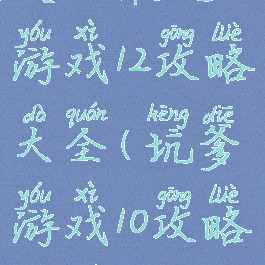 yóu xì gōng lüè
游戏12攻略
dà quán kēng diē
大全(坑爹
yóu xì gōng lüè
游戏10攻略